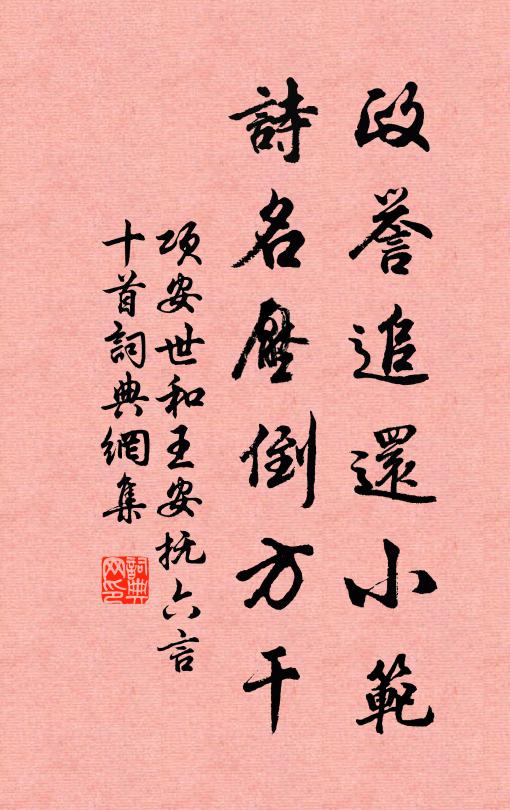 政譽追還小範
詩名壓倒方干
項安世和王安抚六言
十首詞典網集
詞典网印